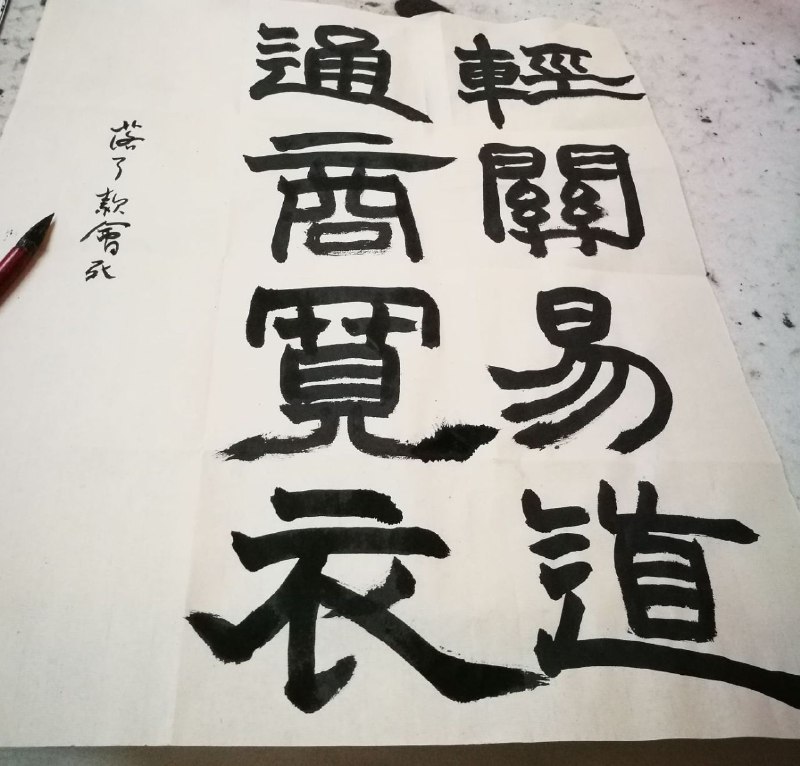 輕關易道
通商寬衣
落了款會死